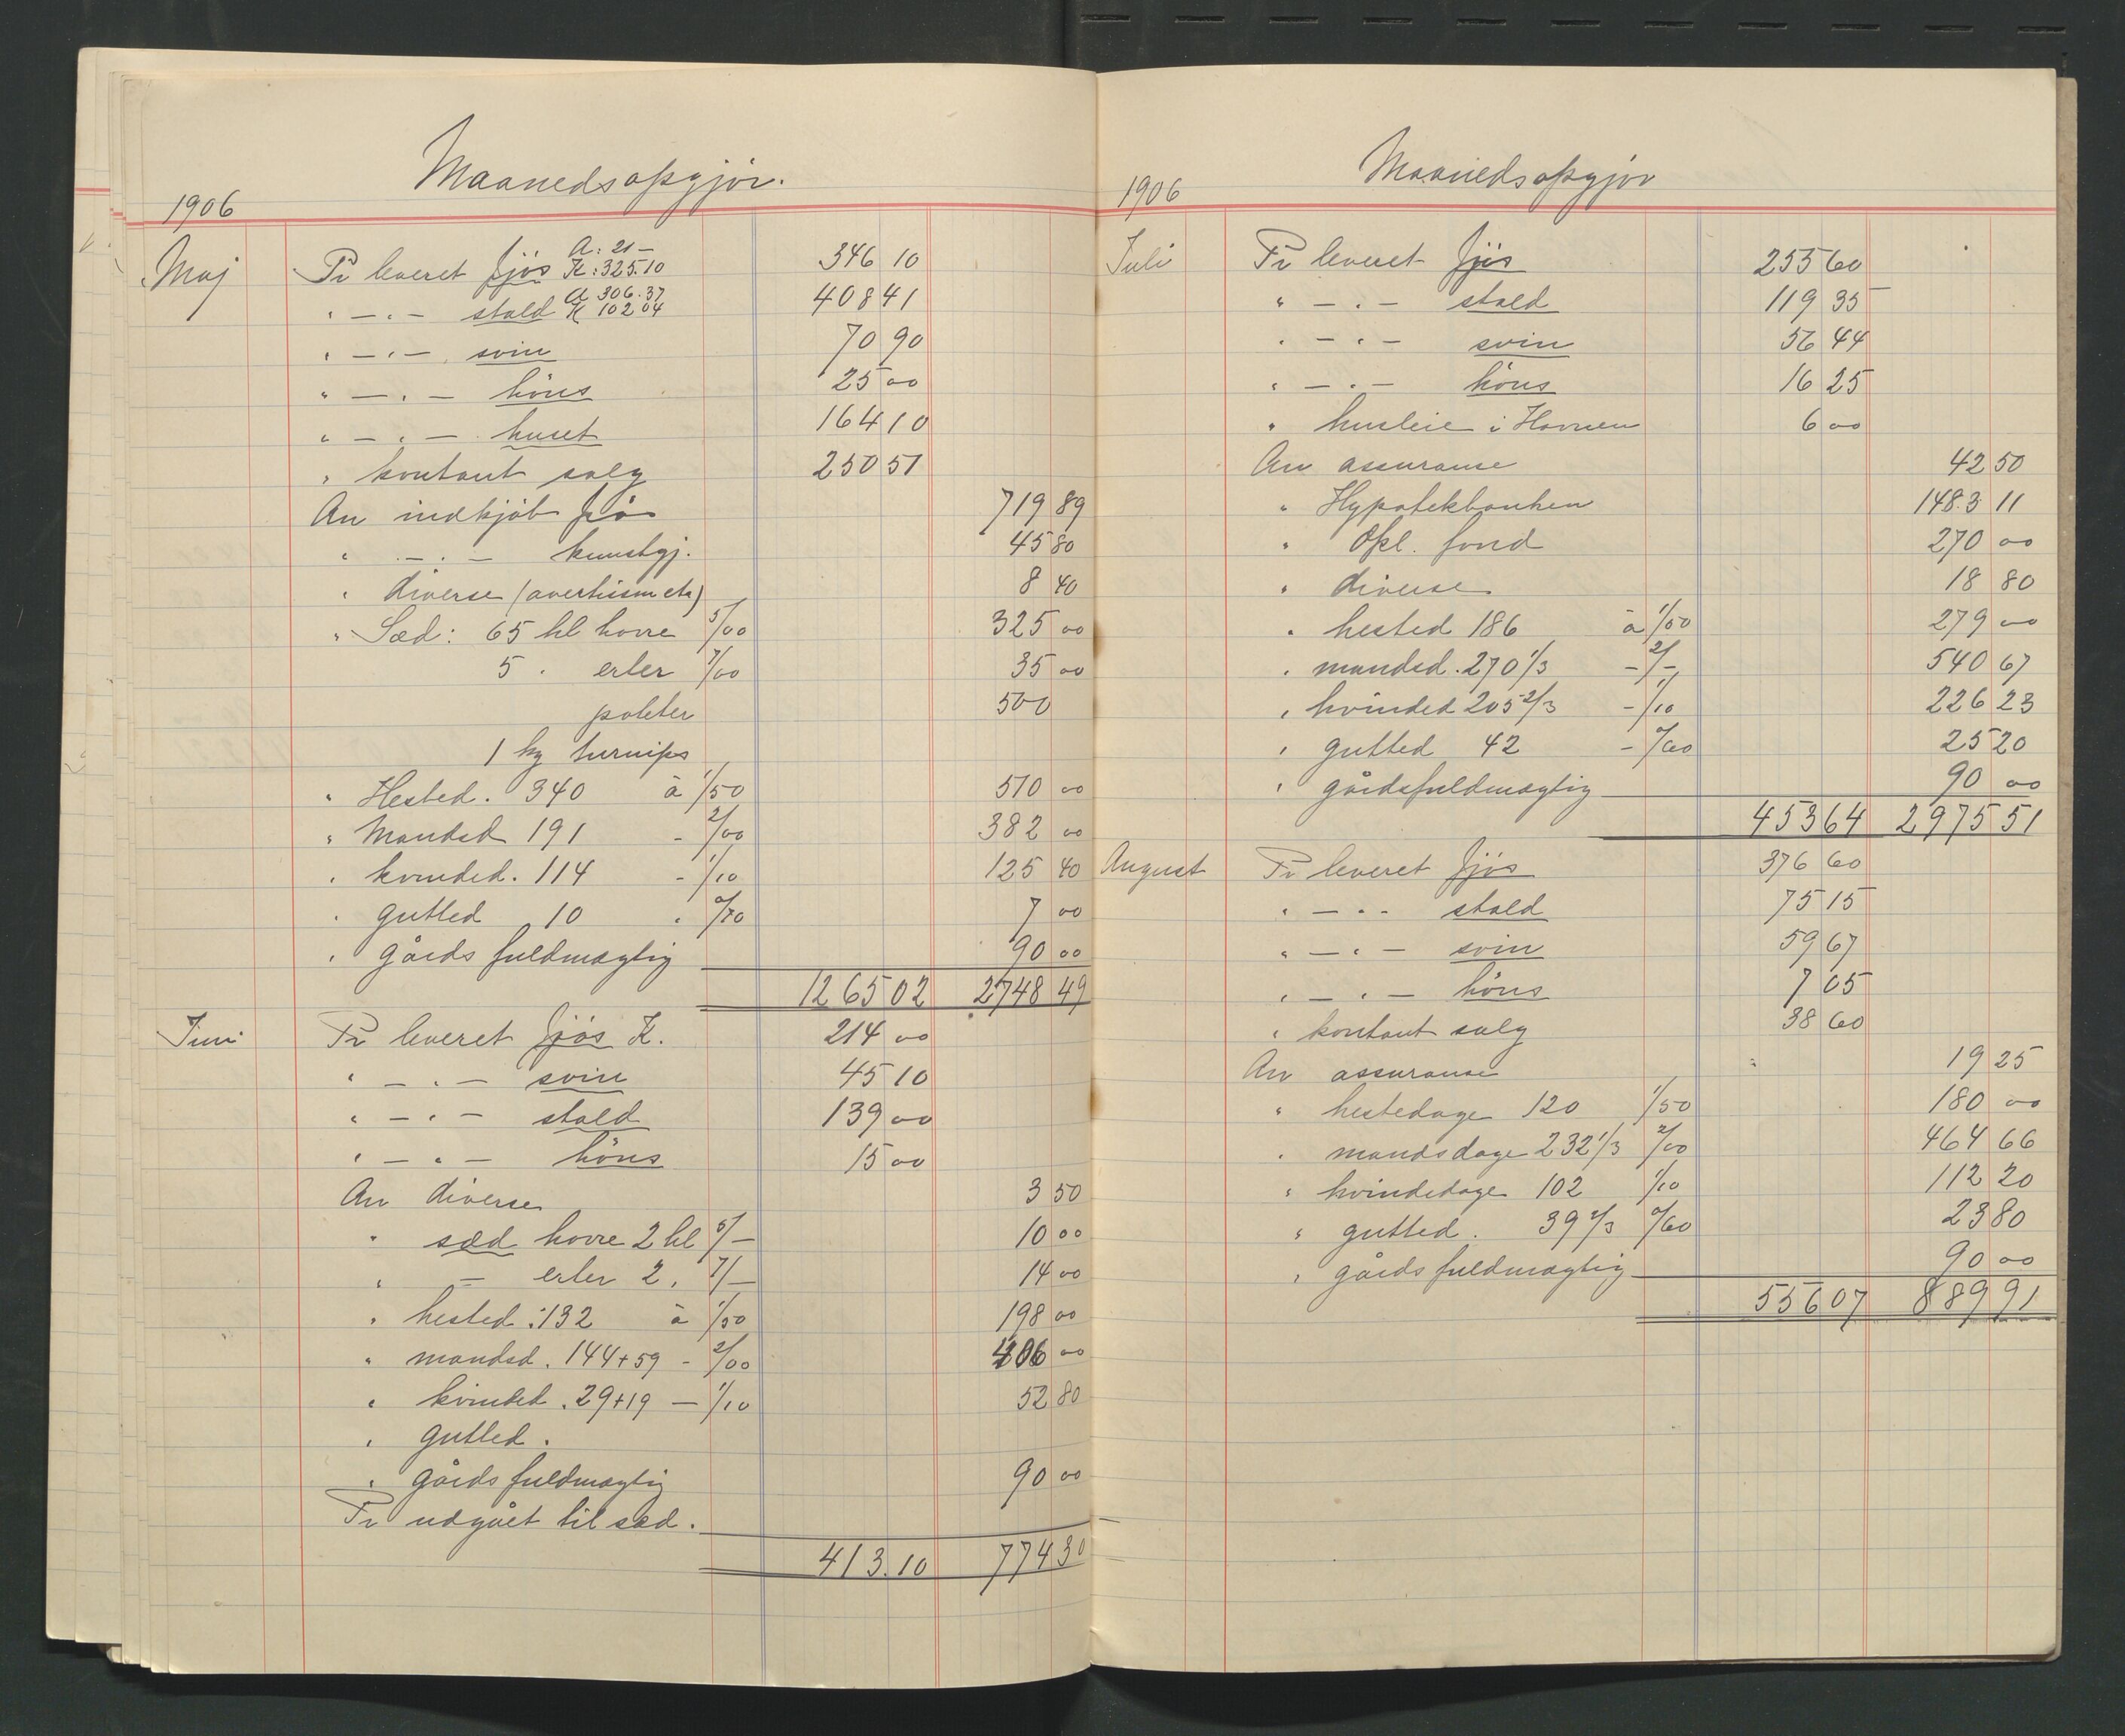 Maanedsopgjör.
1906
Maj Pr leveret fjös A: 21 – K: 325.10 346 10
" – " – stald A 306.37 K 102 04 408 41
" – " – svin 70 90
" – " – höns 25 00
" – " – huset 164 10
" kontant salg 250 51
An indkjöb frö 719 89
" – " – kunstgj. 45 80
" diverse (avertissm etc) 8 40
" Sæd: 65 hl havre 5/00 325 00
5 " erter 7/00 35 00
poteter 500
1 kg turnips
" Hested. 340 à 1/50 510 00
" Mandsd 191 - 2/00 382 00
" kvinded. 114 - 1/10 125 40
" gutted 10 " 0/70 7 00
" gårdsfuldmægtig 90 00
1265 02 2748 49
Juni Pr leveret fjös K. 214 00
" – " – svin 45 10
" – " – stald 139 00
" – " – höns 15 00
An diverse 3 50
" sæd havre 2 hl 5/– 10 00
" – erter 2 " 7/– 14 00
" hested: 132 à 1/50 198 00
" mandsd. 144+59 - 2/00 406 00
" kvinded. 29+19 – 1/10 52 80
" gutted.
" gårdsfuldmægtig 90 00
Pr udgået til sæd.
413.10 774 30
Maanedsopgjör
1906
Juli Pr leveret fjös 255 60
" – " – stald 119 35
" – " – svin 56 44
" – " – höns 16 25
" husleie i Havnen 6 00
An assuranse 42 50
" Hypotekbanken 1483 11
" Opl. fond 270 00
" diverse 18 80
" hested 186 à 1/50 279 00
" mandsd. 270 1/3 - 2/– 540 67
" kvinded 205 2/3 - 1/10 226 23
" gutted 42 - 0/60 25 20
" gårdsfuldmægtig 90 00
453 64 2975 51
August Pr leveret fjös 376 60
" – " – stald 75 15
" – " – svin 59 67
" – " – höns 7 05
" kontant salg 38 60
An assuranse 19 25
" hestedage 120 1/50 180 00
" mandsdage 232 1/3 2/00 464 66
" kvindedage 102 1/10 112 20
" gutted. 39 2/3 0/60 23 80
" gårdsfuldmægtig 90 00
556 07 889 91